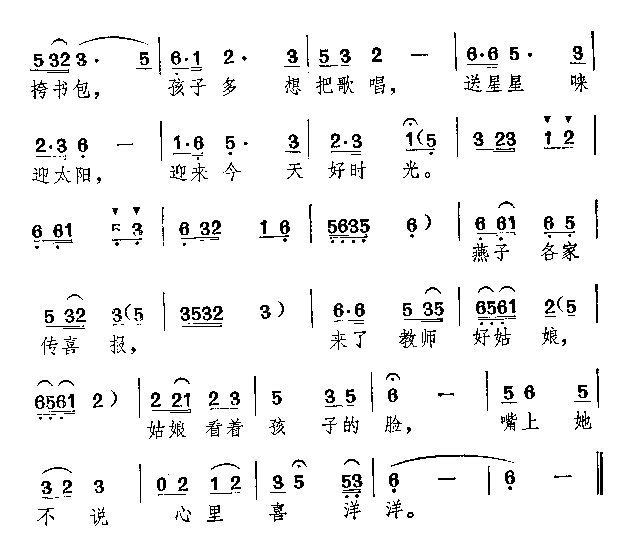 5 3 2 3 · 5 | 6 · 1 2 · 3 | 5 3 2 — | 6 · 6 5 · 3 |
挎书包， 孩子多 想把歌唱， 送星星 咪
2 · 3 6 — | 1 · 6 5 · 3 | 2 · 3 1 ( 5 | 3 2 3 1 2 |
迎太阳， 迎来今 天好时 光。
6 6 1 5 3 | 6 3 2 1 6 | 5 6 3 5 6 ) | 6 6 1 6 5 |
燕子 各家
5 3 2 3 ( 5 | 3 5 3 2 3 ) | 6 · 6 5 3 5 | 6 5 6 1 2 ( 5 |
传喜 报， 来了 教师 好姑 娘，
6 5 6 1 2 ) | 2 2 1 2 3 | 5 3 5 | 6 — | 5 6 5 |
姑娘 看着 孩 子的 脸， 嘴上 她
3 2 3 | 0 2 1 2 | 3 5 5 3 | 6 — | 6 — ‖
不 说 心里 喜 洋 洋。